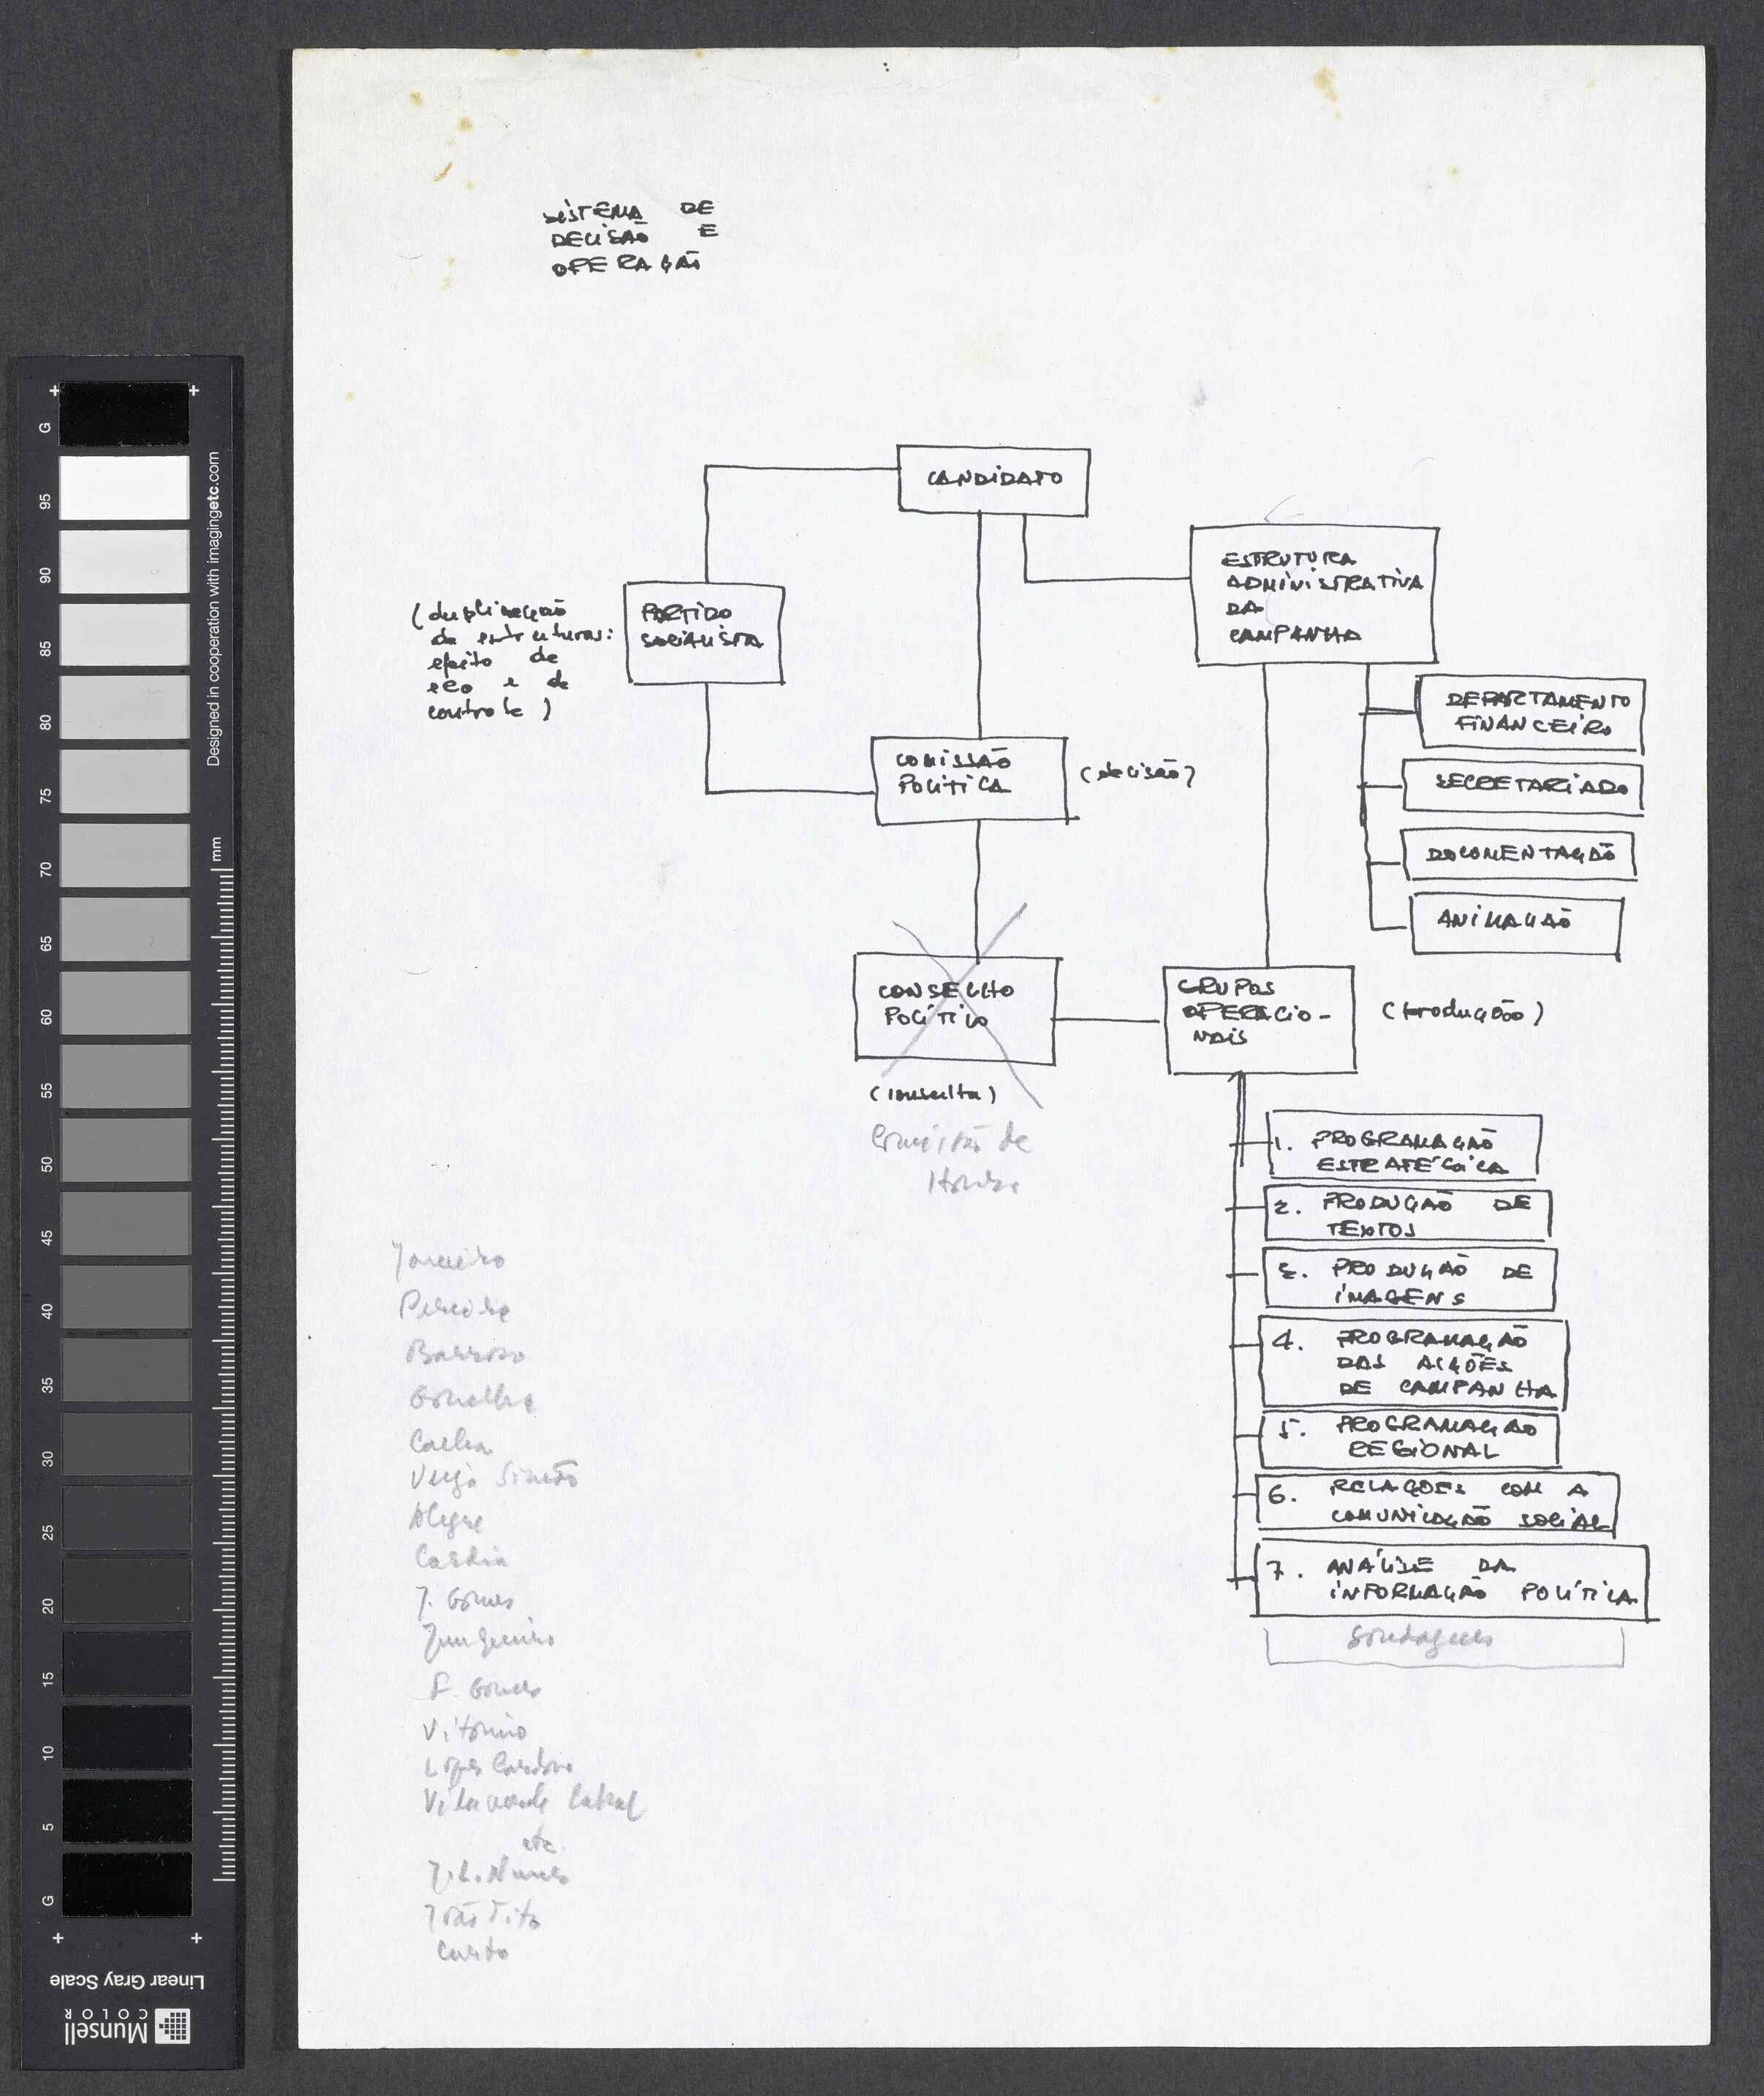 SISTEMA DE
DECISÃO E
OPERAÇÃO
CANDIDATO
ESTRUTURA
ADMINISTRATIVA
DA
CAMPANHA
(duplicação
de estruturas:
efeito de
eco e de
controle)
PARTIDO
SOCIALISTA
DEPARTAMENTO
FINANCEIRO
SECRETARIADO
DOCUMENTAÇÃO
ANIMAÇÃO
COMISSÃO
POLÍTICA
(decisão)
CONSELHO
POLÍTICO
(consulta)
Comissão de
Honra
GRUPOS
OPERACIO-
NAIS
(produção)
1. PROGRAMAÇÃO
ESTRATÉGICA
2. PRODUÇÃO DE
TEXTOS
3. PRODUÇÃO DE
IMAGENS
4. PROGRAMAÇÃO
DAS ACÇÕES
DE CAMPANHA
5. PROGRAMAÇÃO
REGIONAL
6. RELAÇÕES COM A
COMUNICAÇÃO SOCIAL
7. ANÁLISE DA
INFORMAÇÃO POLÍTICA
Sondagens
Barroso
Gonelha
Veiga Simão
Alegre
Cardia
J. Gomes
F. Gomes
Vitorino
Lopes Cardoso
Vilaverde Cabral
etc.
J.L. Nunes
João Tito
G
95
90
85
80
75
70
65
60
55
50
45
40
35
30
25
20
15
10
5
G
Designed in cooperation with imagingetc.com
mm
Linear Gray Scale
Munsell
COLOR